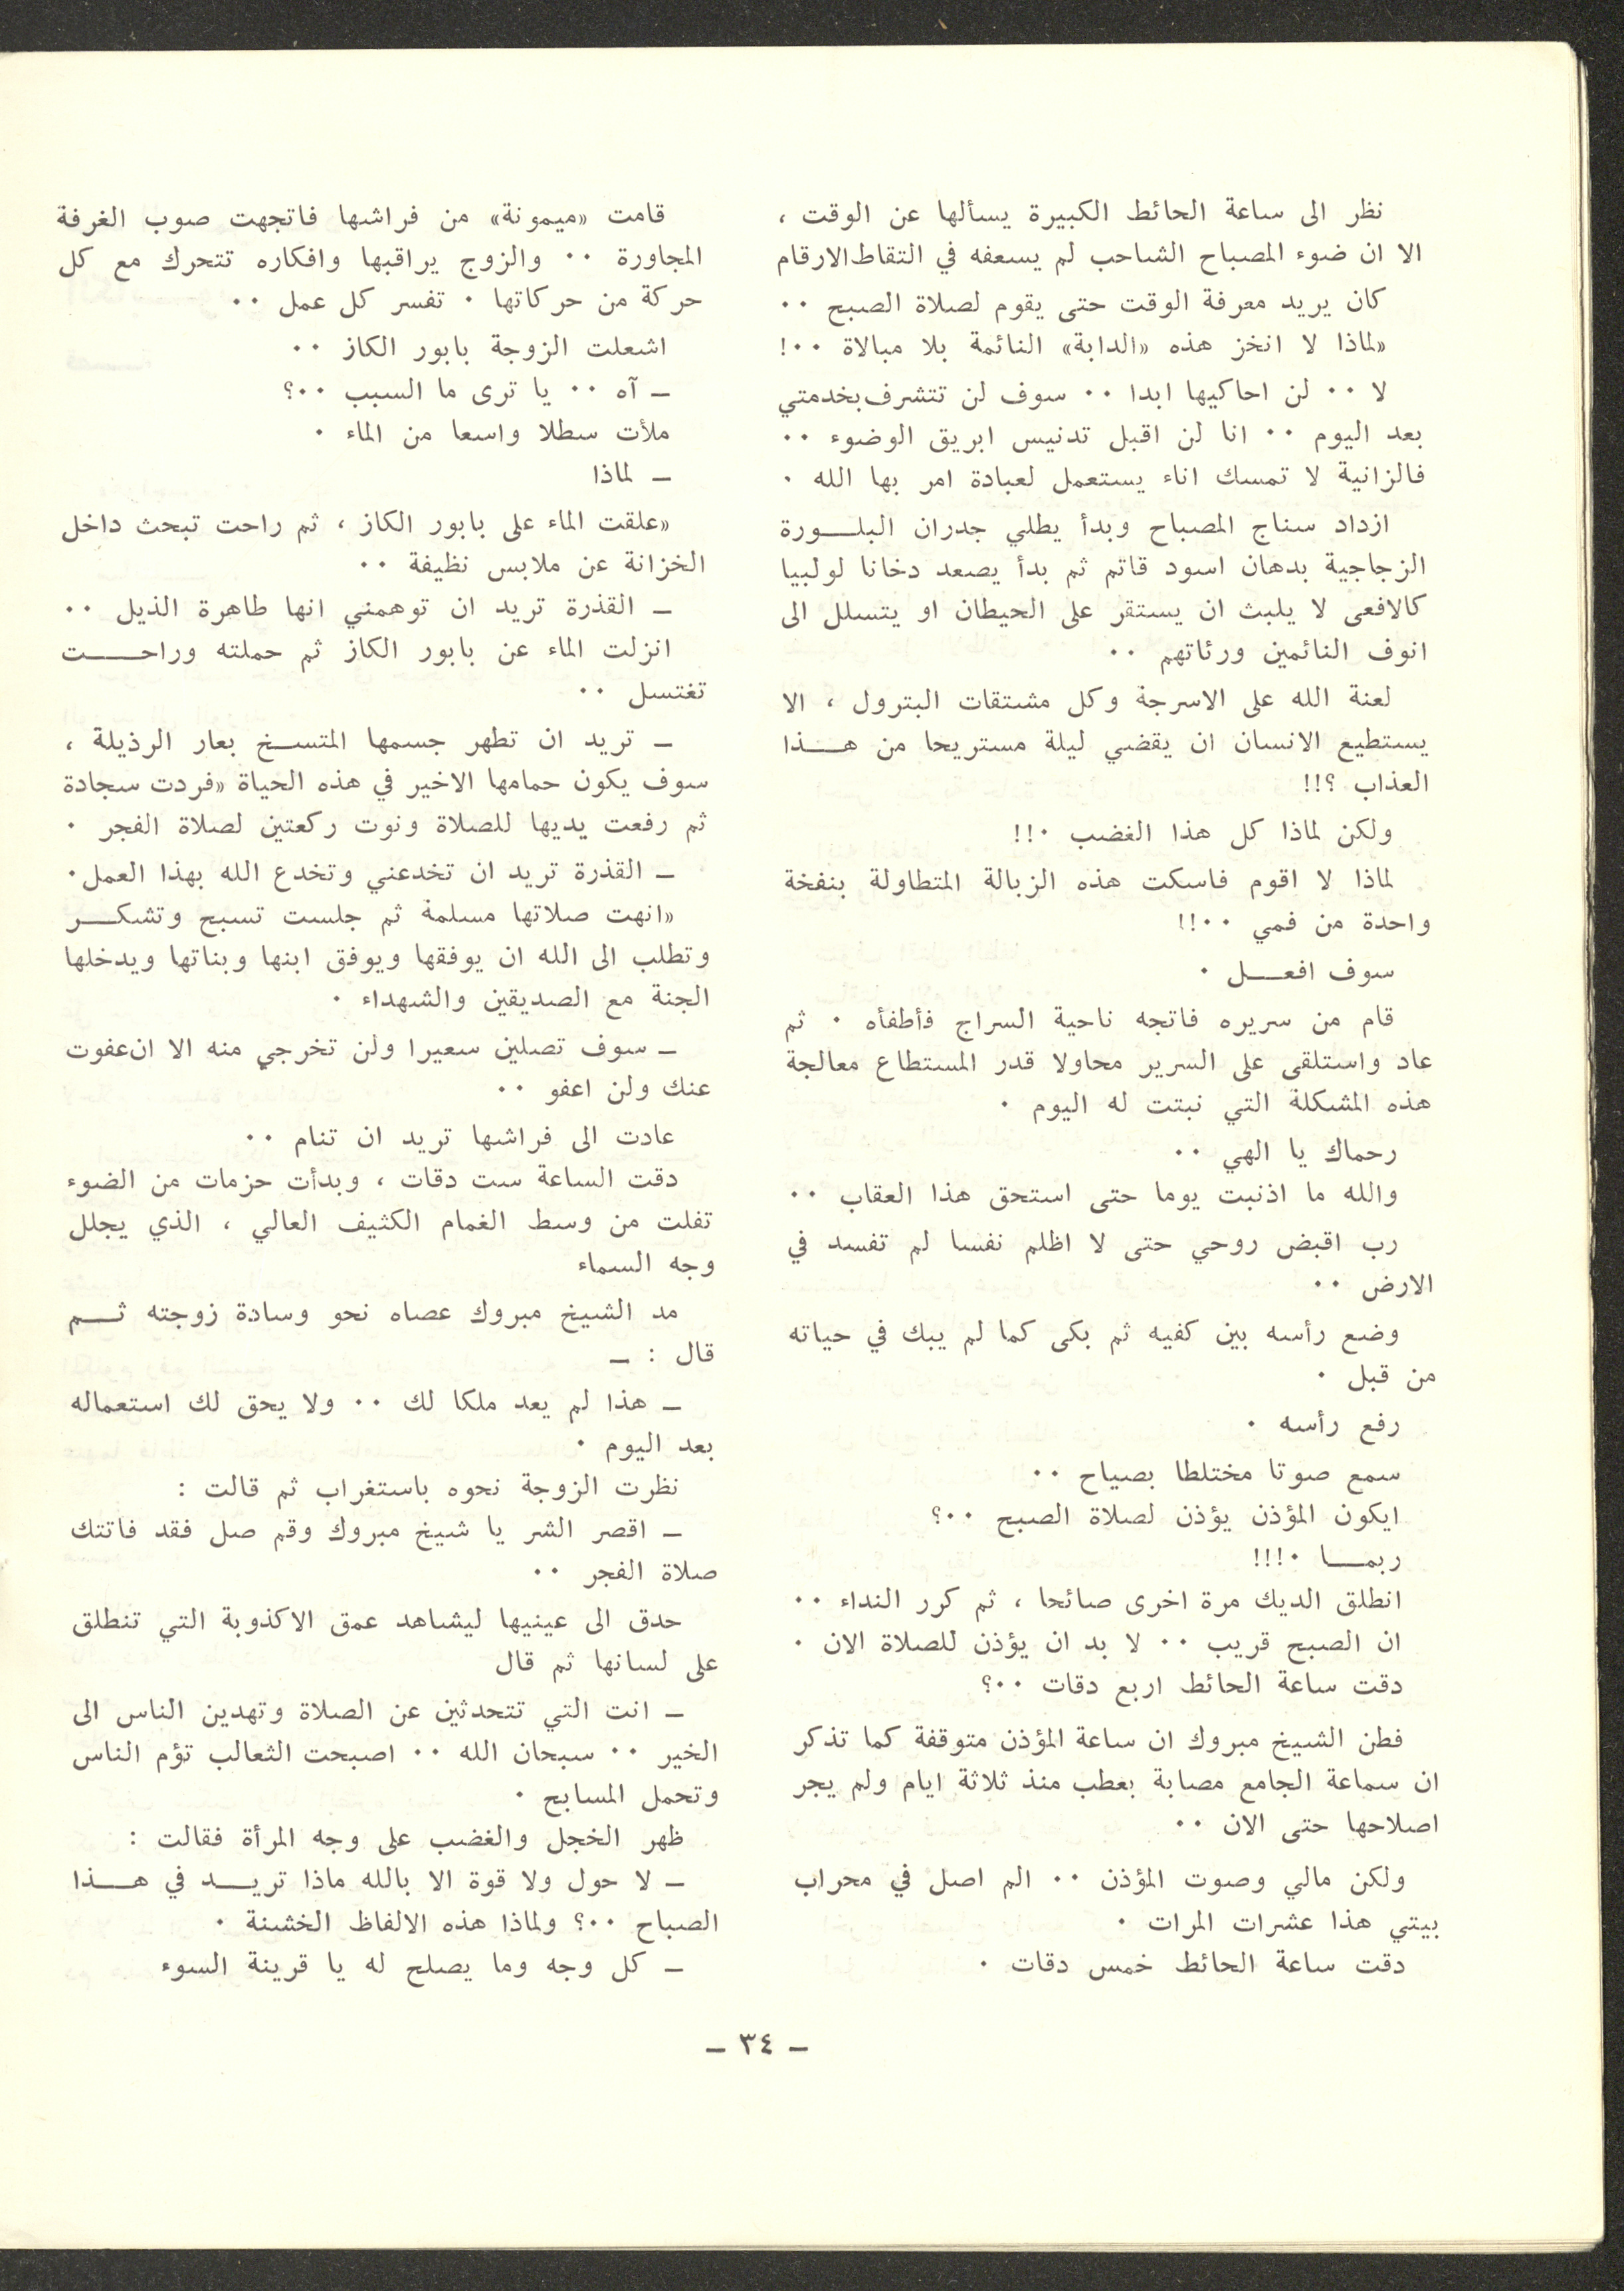 نظر الى ساعة الحائط الكبيرة يسألها عن الوقت ،
الا ان ضوء المصباح الشاحب لم يسعفه في التقاط الارقام
كان يريد معرفة الوقت حتى يقوم لصلاة الصبح ٠٠
«لماذا لا انخز هذه «الدابة» النائمة بلا مبالاة ٠٠!
لا ٠٠ لن احاكيها ابدا ٠٠ سوف لن تتشرف بخدمتي
بعد اليوم ٠٠ انا لن اقبل تدنيس ابريق الوضوء ٠٠
فالزانية لا تمسك اناء يستعمل لعبادة امر بها الله ٠
ازداد سناج المصباح وبدأ يطلي جدران البلـــورة
الزجاجية بدهان اسود قاتم ثم بدأ يصعد دخانا لولبيا
كالافعى لا يلبث ان يستقر على الحيطان او يتسلل الى
انوف النائمين ورئاتهم ٠٠
لعنة الله على الاسرجة وكل مشتقات البترول ، الا
يستطيع الانسان ان يقضي ليلة مستريحا من هـــذا
العذاب ؟!!
ولكن لماذا كل هذا الغضب ٠!!
لماذا لا اقوم فاسكت هذه الزبالة المتطاولة بنفخة
واحدة من فمي ٠٠!!
سوف افعـــل ٠
قام من سريره فاتجه ناحية السراج فأطفأه ٠ ثم
عاد واستلقى على السرير محاولا قدر المستطاع معالجة
هذه المشكلة التي نبتت له اليوم ٠
رحماك يا الهي ٠٠
والله ما اذنبت يوما حتى استحق هذا العقاب ٠٠
رب اقبض روحي حتى لا اظلم نفسا لم تفسد في
الارض ٠٠
وضع رأسه بين كفيه ثم بكى كما لم يبك في حياته
من قبل ٠
رفع رأسه ٠
سمع صوتا مختلطا بصياح ٠٠
ايكون المؤذن يؤذن لصلاة الصبح ٠٠؟
ربمـــا ٠!!!
انطلق الديك مرة اخرى صائحا ، ثم كرر النداء ٠٠
ان الصبح قريب ٠٠ لا بد ان يؤذن للصلاة الان ٠
دقت ساعة الحائط اربع دقات ٠٠؟
فطن الشيخ مبروك ان ساعة المؤذن متوقفة كما تذكر
ان سماعة الجامع مصابة بعطب منذ ثلاثة ايام ولم يجر
اصلاحها حتى الان ٠٠
ولكن مالي وصوت المؤذن ٠٠ الم اصل في محراب
بيتي هذا عشرات المرات ٠
دقت ساعة الحائط خمس دقات ٠
قامت «ميمونة» من فراشها فاتجهت صوب الغرفة
المجاورة ٠٠ والزوج يراقبها وافكاره تتحرك مع كل
حركة من حركاتها ٠ تفسر كل عمل ٠٠
اشعلت الزوجة بابور الكاز ٠٠
ـ آه ٠٠ يا ترى ما السبب ٠٠؟
ملأت سطلا واسعا من الماء ٠
ـ لماذا
«علقت الماء على بابور الكاز ، ثم راحت تبحث داخل
الخزانة عن ملابس نظيفة ٠٠
ـ القذرة تريد ان توهمني انها طاهرة الذيل ٠٠
انزلت الماء عن بابور الكاز ثم حملته وراحـــت
تغتسل ٠٠
ـ تريد ان تطهر جسمها المتســخ بعار الرذيلة ،
سوف يكون حمامها الاخير في هذه الحياة «فردت سجادة
ثم رفعت يديها للصلاة ونوت ركعتين لصلاة الفجر ٠
ـ القذرة تريد ان تخدعني وتخدع الله بهذا العمل٠
«انهت صلاتها مسلمة ثم جلست تسبح وتشكـــر
وتطلب الى الله ان يوفقها ويوفق ابنها وبناتها ويدخلها
الجنة مع الصديقين والشهداء ٠
ـ سوف تصلين سعيرا ولن تخرجي منه الا ان عفوت
عنك ولن اعفو ٠٠
عادت الى فراشها تريد ان تنام ٠٠
دقت الساعة ست دقات ، وبدأت حزمات من الضوء
تفلت من وسط الغمام الكثيف العالي ، الذي يجلل
وجه السماء
مد الشيخ مبروك عصاه نحو وسادة زوجته ثـــم
قال : ـ
ـ هذا لم يعد ملكا لك ٠٠ ولا يحق لك استعماله
بعد اليوم ٠
نظرت الزوجة نحوه باستغراب ثم قالت :
ـ اقصر الشر يا شيخ مبروك وقم صل فقد فاتتك
صلاة الفجر ٠٠
حدق الى عينيها ليشاهد عمق الاكذوبة التي تنطلق
على لسانها ثم قال
ـ انت التي تتحدثين عن الصلاة وتهدين الناس الى
الخير ٠٠ سبحان الله ٠٠ اصبحت الثعالب تؤم الناس
وتحمل المسابح ٠
ظهر الخجل والغضب على وجه المرأة فقالت :
ـ لا حول ولا قوة الا بالله ماذا تريـــد في هـــذا
الصباح ٠٠؟ ولماذا هذه الالفاظ الخشنة ٠
ـ كل وجه وما يصلح له يا قرينة السوء
ـ ٣٤ ـ